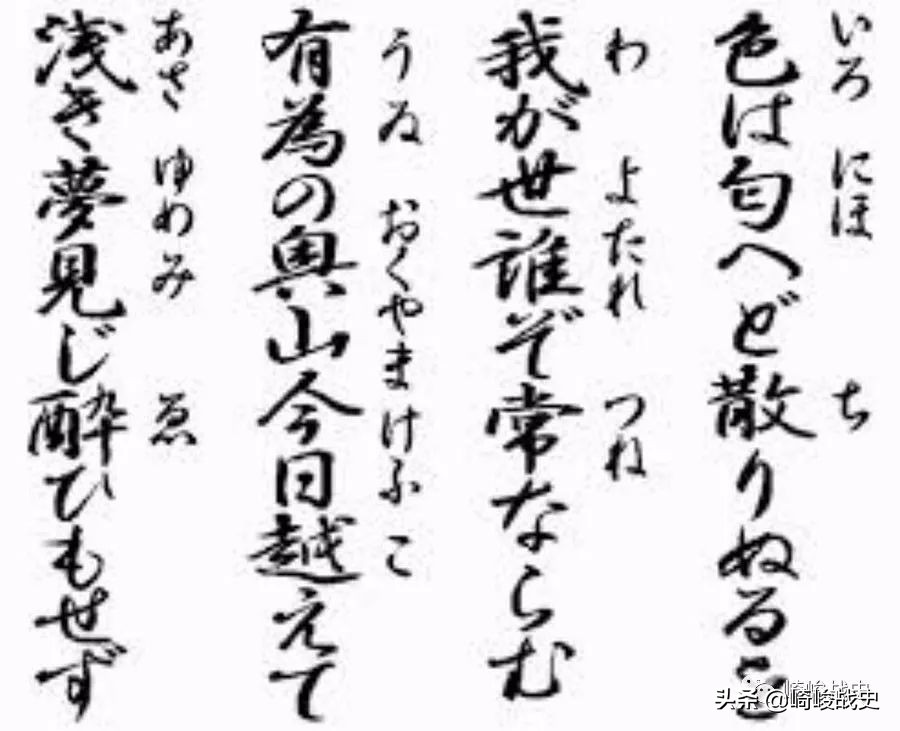 いろ にほ ち
色は匂へど散りぬるを
わ よたれ つね
我が世誰ぞ常ならむ
うゐ おくやまけふ こ
有為の奥山今日越えて
あさ ゆめみ ゑ
浅き夢見じ酔ひもせず
崎峻战史
头条 @崎峻战史